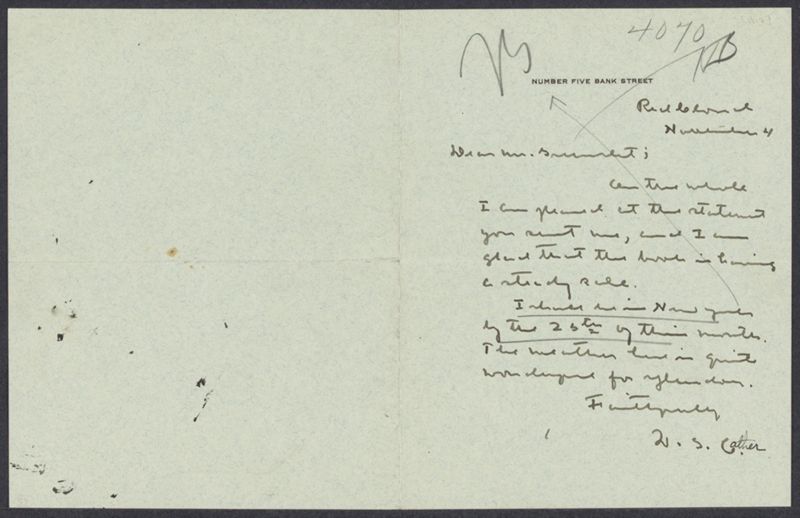 4070
NUMBER FIVE BANK STREET
Red Cloud
November 4
Dear Mr. Greenslet;
On the whole
I am pleased at the statement
you sent me, and I am
glad that the book is having
a steady sale.
I shall be in New York
by the 25th of this month.
The weather here is quite
wonderful for splendor.
Faithfully
W. S. Cather